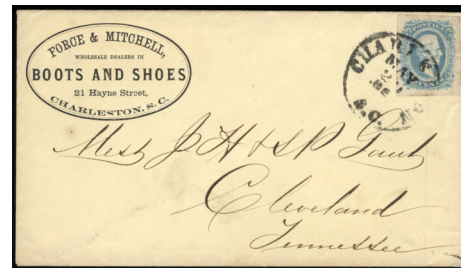 FORCE & MITCHELL,
WHOLESALE DEALERS IN
BOOTS AND SHOES
21 Hayne Street,
CHARLESTON, S.C.
POSTAGE
MAY
S.C.
Mess J H & S P Gaut
Cleveland
Tennessee